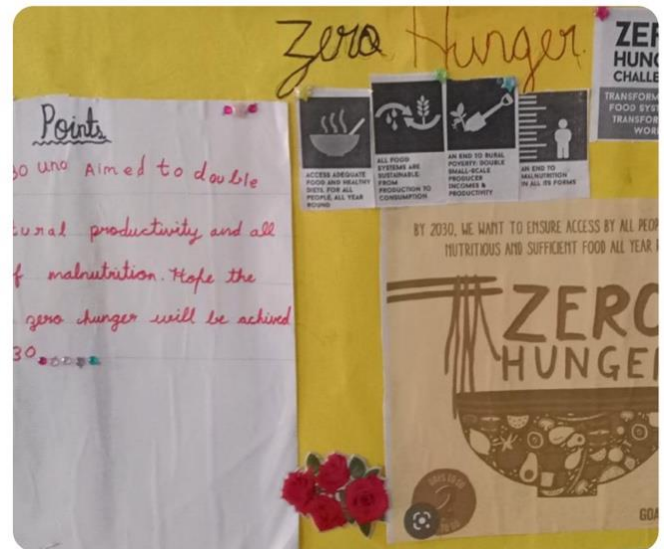 Zero Hunger
Points
30 uno Aimed to double
tural productivity and all
f malnutrition. Hope the
zero hunger will be achived
30
ACCESS ADEQUATE
FOOD AND HEALTHY
DIETS, FOR ALL
PEOPLE, ALL YEAR
ROUND
ALL FOOD
SYSTEMS ARE
SUSTAINABLE:
FROM
PRODUCTION TO
CONSUMPTION
AN END TO RURAL
POVERTY: DOUBLE
SMALL-SCALE
PRODUCER
INCOMES &
PRODUCTIVITY
AN END TO
MALNUTRITION
IN ALL ITS FORMS
ZER
HUNG
CHALLE
TRANSFORM
FOOD SYST
TRANSFOR
WOR
BY 2030, WE WANT TO ENSURE ACCESS BY ALL PEOP
NUTRITIOUS AND SUFFICIENT FOOD ALL YEAR
ZERO
HUNGE
GOA